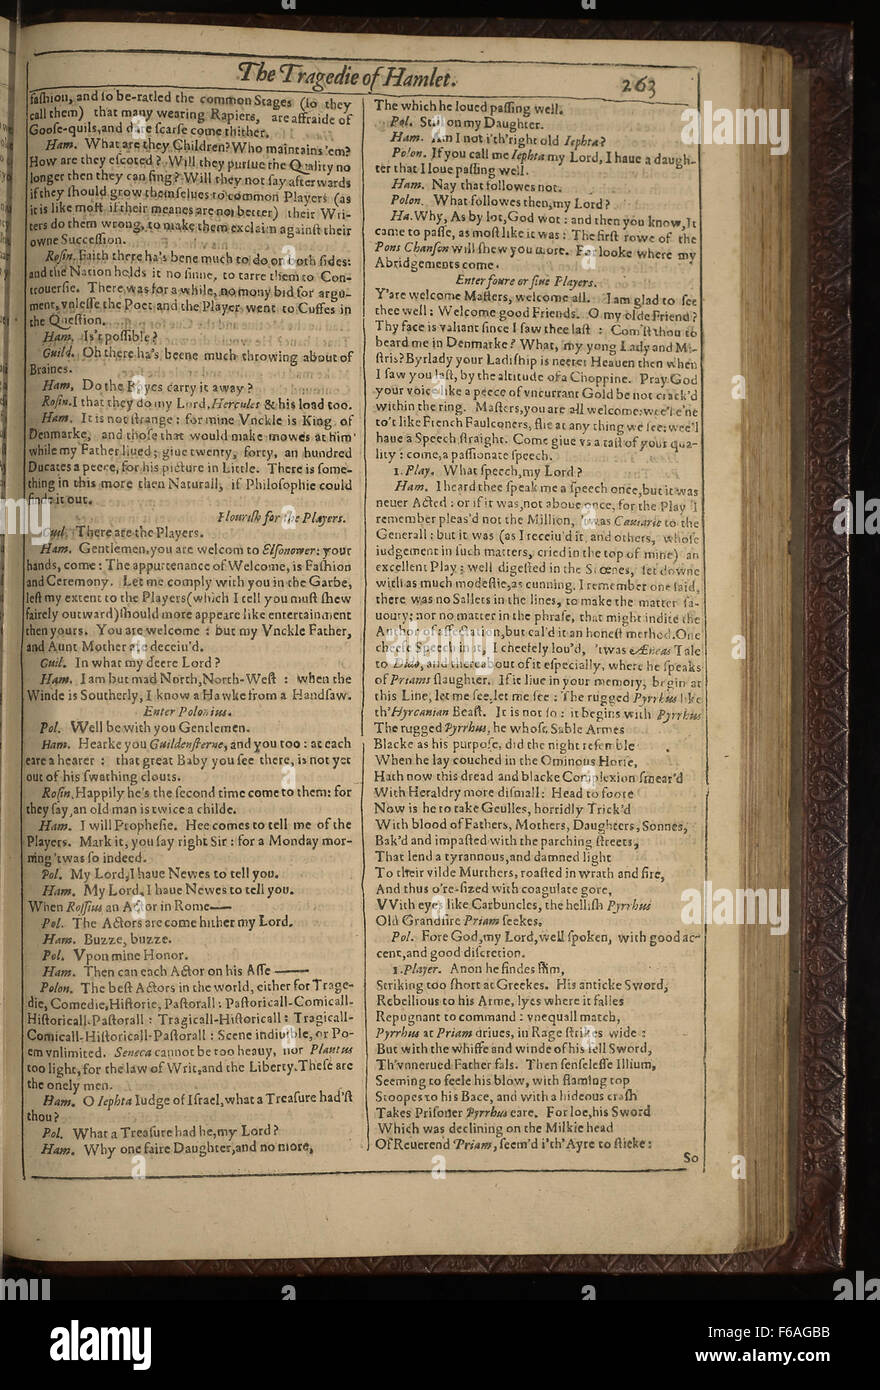 The Tragedie of Hamlet.
263
faſhion, and ſo be-ratled the common Stages (ſo they
call them) that many wearing Rapiers, are affraide of
Gooſe-quils, and dare ſcarſe come thither.
Ham. What are they Children? Who maintains 'em?
How are they eſcoted? Will they purſue the Quality no
longer then they can ſing? Will they not ſay afterwards
if they ſhould grow themſelues to common Players (as
it is like moſt if their meanes are not better) their Wri-
ters do them wrong, to make them exclaim againſt their
owne Succeſſion.
Roſin. Faith there ha's bene much to do on both ſides:
and the Nation holds it no ſinne, to tarre them to Con-
trouerſie. There was for a while, no mony bid for argu-
ment, vnleſſe the Poet and the Player went to Cuffes in
the Queſtion.
Ham. Is't poſſible?
Guild. Oh there ha's beene much throwing about of
Braines.
Ham. Do the Boyes carry it away?
Roſin. I that they do my Lord, Hercules & his load too.
Ham. It is not ſtrange: for mine Vnckle is King of
Denmarke, and thoſe that would make mowes at him
while my Father liued; giue twenty, forty, an hundred
Ducates a peece, for his picture in Little. There is ſome-
thing in this more then Naturall, if Philoſophie could
finde it out.
Flouriſh for the Players.
Guil. There are the Players.
Ham. Gentlemen, you are welcom to Elſonower: your
hands, come: The appurtenance of Welcome, is Faſhion
and Ceremony. Let me comply with you in the Garbe,
leſt my extent to the Players (which I tell you muſt ſhew
fairely outward) ſhould more appeare like entertainment
then yours. You are welcome: but my Vnckle Father,
and Aunt Mother are deceiu'd.
Guil. In what my deere Lord?
Ham. I am but mad North, North-Weſt: when the
Winde is Southerly, I know a Hawke from a Handſaw.
Enter Polonius.
Pol. Well be with you Gentlemen.
Ham. Hearke you Guildenſterne, and you too: at each
eare a hearer: that great Baby you ſee there, is not yet
out of his ſwathing clouts.
Roſin. Happily he's the ſecond time come to them: for
they ſay, an old man is twice a childe.
Ham. I will Propheſie. Hee comes to tell me of the
Players. Mark it, you ſay right Sir: for a Monday mor-
ning 'twas ſo indeed.
Pol. My Lord, I haue Newes to tell you.
Ham. My Lord, I haue Newes to tell you.
When Roſſius an Actor in Rome——
Pol. The Actors are come hither my Lord.
Ham. Buzze, buzze.
Pol. Vpon mine Honor.
Ham. Then can each Actor on his Aſſe——
Polon. The beſt Actors in the world, either for Trage-
die, Comedie, Hiſtorie, Paſtorall: Paſtoricall-Comicall-
Hiſtoricall-Paſtorall: Tragicall-Hiſtoricall: Tragicall-
Comicall-Hiſtoricall-Paſtorall: Scene indiuible, or Po-
em vnlimited. Seneca cannot be too heauy, nor Plautus
too light, for the law of Writ, and the Liberty. Theſe are
the onely men.
Ham. O Iephta Iudge of Iſrael, what a Treaſure had'ſt
thou?
Pol. What a Treaſure had he, my Lord?
Ham. Why one faire Daughter, and no more,
The which he loued paſſing well.
Pol. Still on my Daughter.
Ham. Am I not i'th'right old Iephta?
Polon. If you call me Iephta my Lord, I haue a daugh-
ter that I loue paſſing well.
Ham. Nay that followes not.
Polon. What followes then, my Lord?
Ha. Why, As by lot, God wot: and then you know, It
came to paſſe, as moſt like it was: The firſt rowe of the
Pons Chanſon will ſhew you more. For looke where my
Abridgements come.
Enter foure or fiue Players.
Y'are welcome Maſters, welcome all. I am glad to ſee
thee well: Welcome good Friends. O my olde Friend?
Thy face is valiant ſince I ſaw thee laſt: Com'ſt thou to
beard me in Denmarke? What, my yong Lady and Mi-
ſtris? Byrlady your Ladiſhip is neerer Heauen then when
I ſaw you laſt, by the altitude of a Choppine. Pray God
your voice like a peece of vncurrant Gold be not crack'd
within the ring. Maſters, you are all welcome: wee'l e'ne
to't like French Faulconers, flie at any thing we ſee: wee'l
haue a Speech ſtraight. Come giue vs a taſt of your qua-
lity: come, a paſſionate ſpeech.
1. Play. What ſpeech, my Lord?
Ham. I heard thee ſpeak me a ſpeech once, but it was
neuer Acted: or if it was, not aboue once, for the Play I
remember pleas'd not the Million, 'twas Cauiarie to the
Generall: but it was (as I receiu'd it, and others, whoſe
iudgement in ſuch matters, cried in the top of mine) an
excellent Play; well digeſted in the Scœnes, ſet downe
with as much modeſtie, as cunning. I remember one ſaid,
there was no Sallets in the lines, to make the matter ſa-
uoury; nor no matter in the phraſe, that might indite the
Author of affectation, but cal'd it an honeſt method. One
cheefe Speech in it, I cheefely lou'd, 'twas Æneas Tale
to Dido, and thereabout of it eſpecially, where he ſpeaks
of Priams ſlaughter. If it liue in your memory, begin at
this Line, let me ſee, let me ſee: The rugged Pyrrhus like
th'Hyrcanian Beaſt. It is not ſo: it begins with Pyrrhus
The rugged Pyrrhus, he whoſe Sable Armes
Blacke as his purpoſe, did the night reſemble
When he lay couched in the Ominous Horſe,
Hath now this dread and blacke Complexion ſmear'd
With Heraldry more diſmall: Head to foote
Now is he to take Geulles, horridly Trick'd
With blood of Fathers, Mothers, Daughters, Sonnes,
Bak'd and impaſted with the parching ſtreets,
That lend a tyrannous, and damned light
To their vilde Murthers, roaſted in wrath and fire,
And thus o're-ſized with coagulate gore,
VVith eyes like Carbuncles, the helliſh Pyrrhus
Old Grandſire Priam ſeekes.
Pol. Fore God, my Lord, well ſpoken, with good ac-
cent, and good diſcretion.
1. Player. Anon he findes him,
Striking too ſhort at Greekes. His anticke Sword,
Rebellious to his Arme, lyes where it falles
Repugnant to command: vnequall match,
Pyrrhus at Priam driues, in Rage ſtrikes wide:
But with the whiffe and winde of his fell Sword,
Th'vnnerued Father fals. Then ſenſeleſſe Illium,
Seeming to feele his blow, with flaming top
Stoopes to his Bace, and with a hideous craſh
Takes Priſoner Pyrrhus eare. For loe, his Sword
Which was declining on the Milkie head
Of Reuerend Priam, ſeem'd i'th'Ayre to ſticke:
So
alamy stock photo
F6AGBB
www.alamy.com